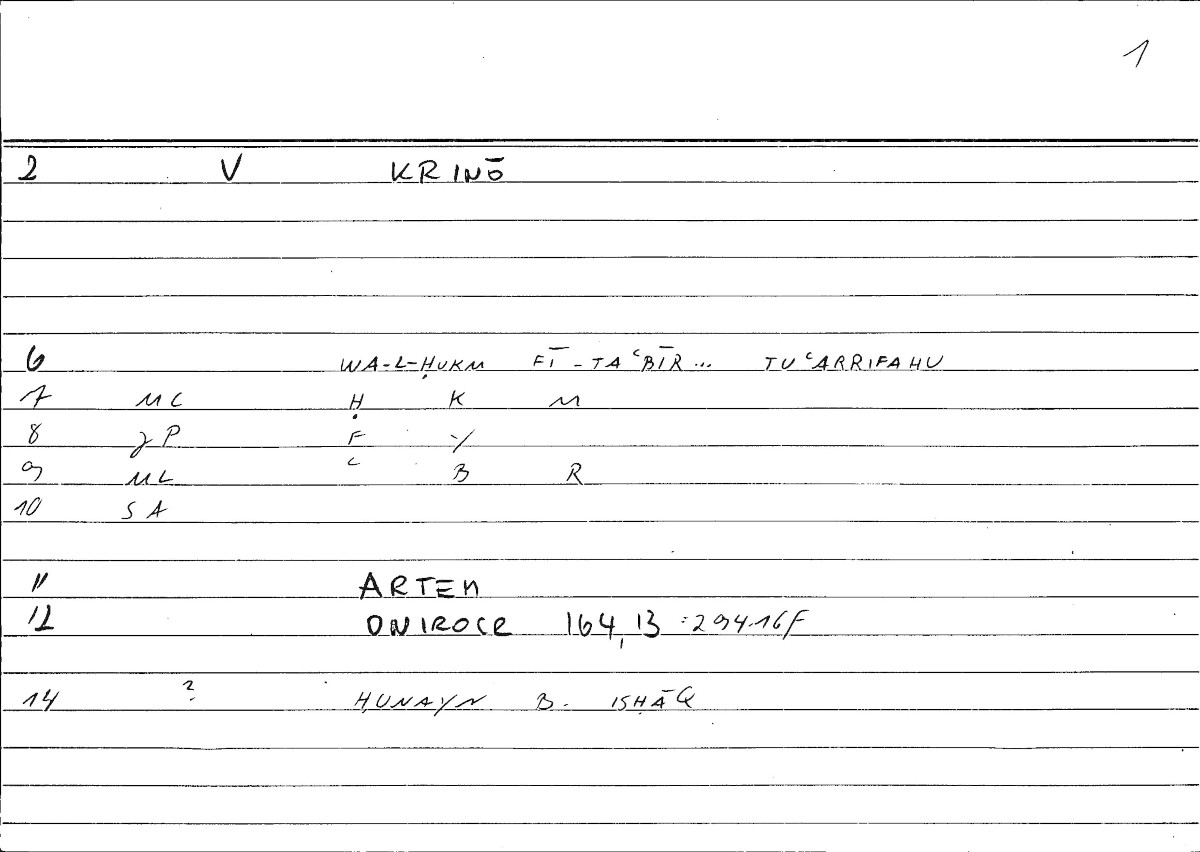 1
2 V KRINŌ
6 WA-L-ḤUKM FĪ-TAʿBĪR... TUʿARRIFAHU
7 MC Ḥ K M
8 γP F Y
9 ML ʿ B R
10 SA
11 ARTEM
12 ONIROCR 164,13 : 294.16F
14 ? ḤUNAYN B. ISḤĀQ